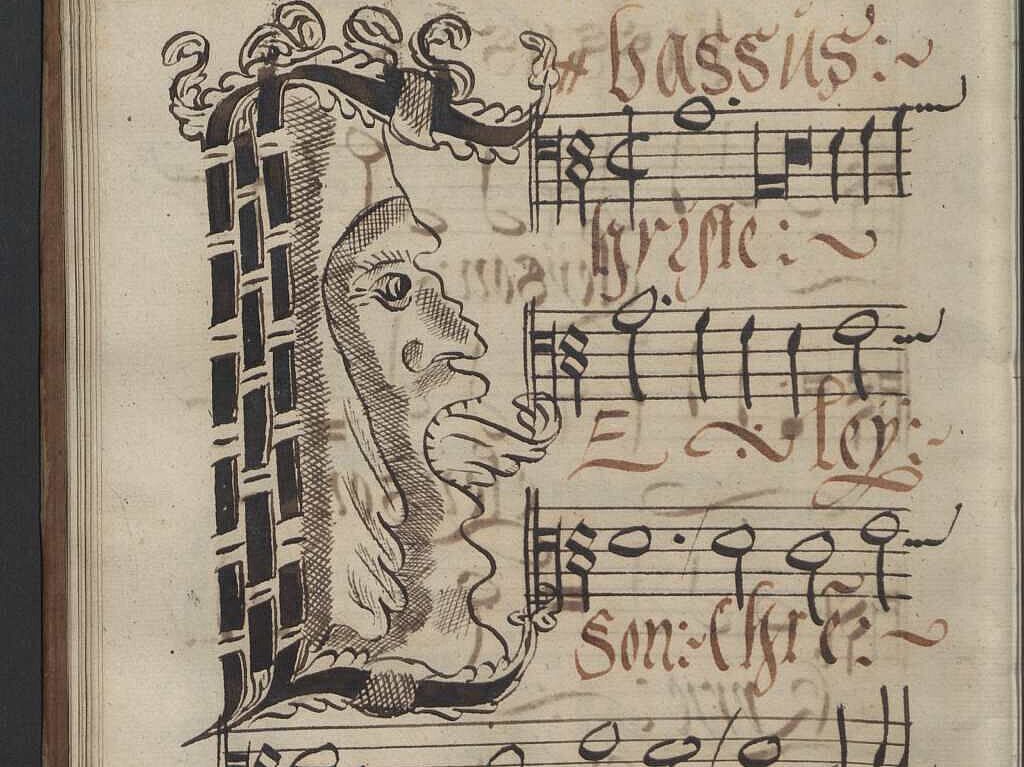 bassus:~
Christe:~
E ~ ley:~
Son: Chrē:~